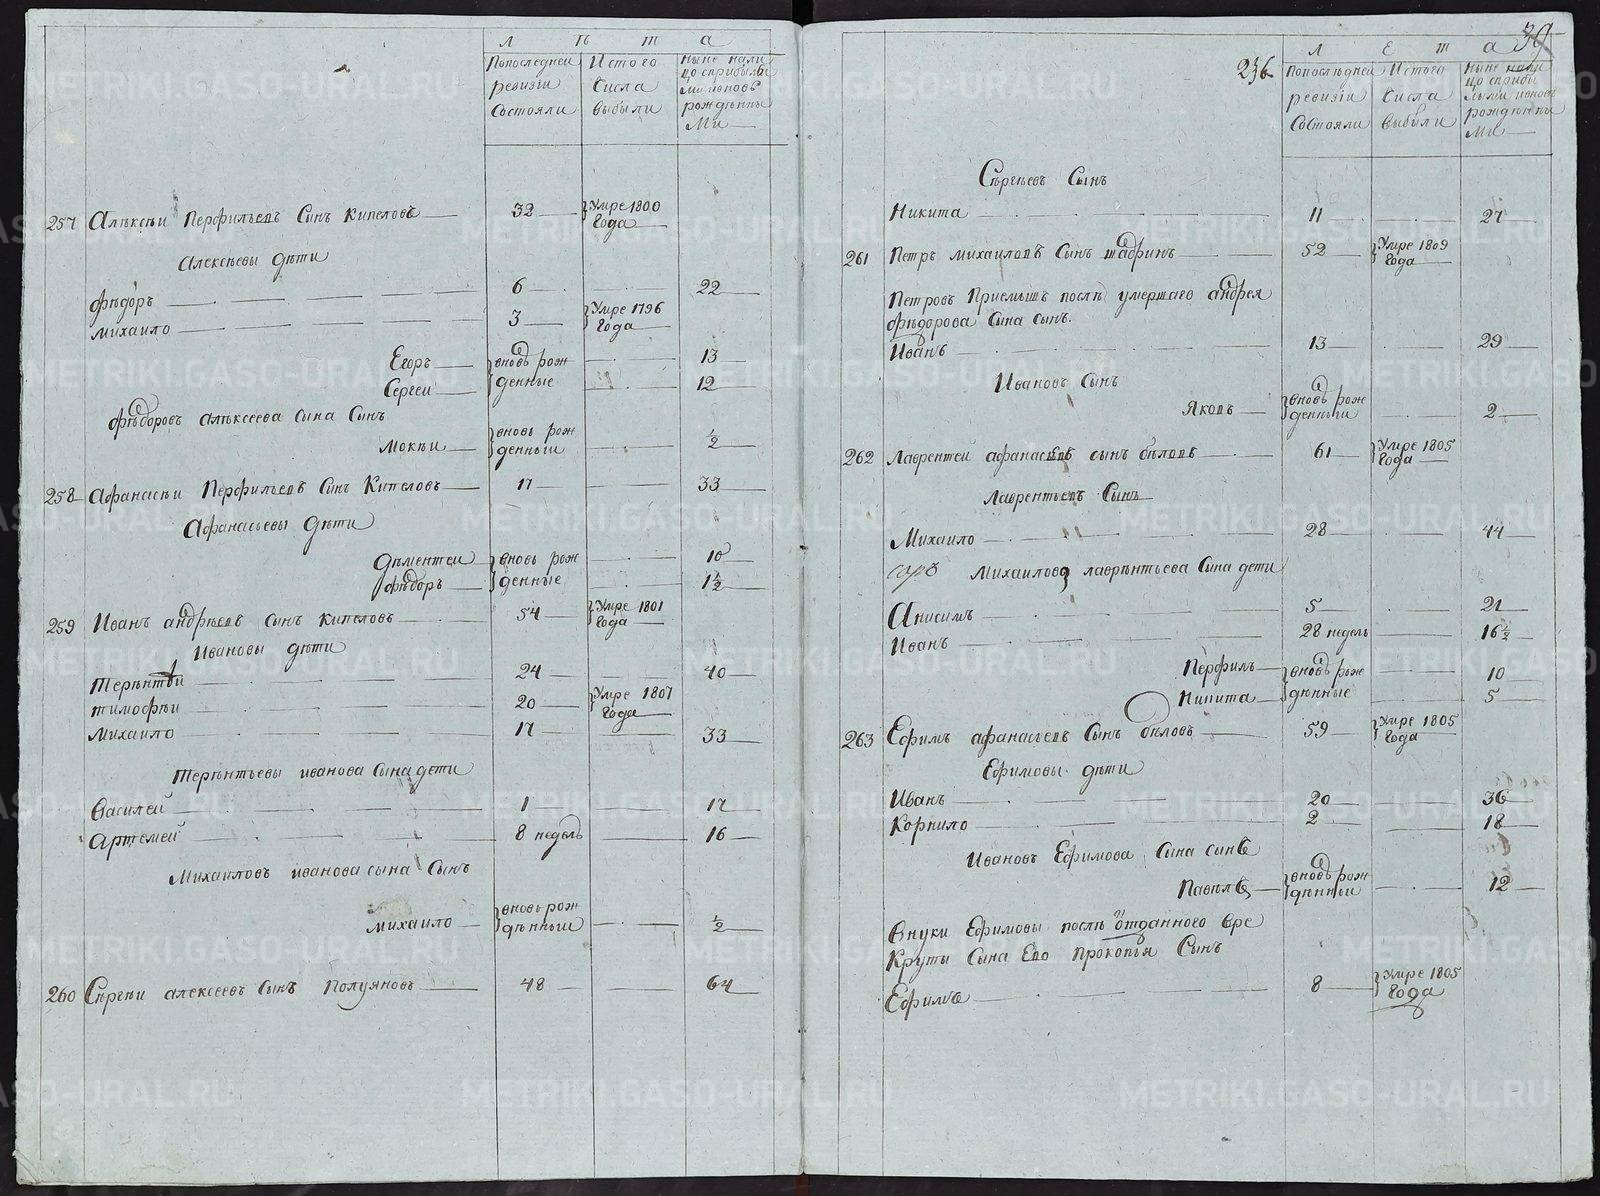 л ѣ т а
Попоследней ревизіи Состояли
Истого Числа выбыли
ныне нали цо сприбылы ми ивновь рожденны ми
257 Алексѣи Перфильевъ Сынъ Кипеловъ 32 Умре 1800 Года
Алексѣевы дѣти
Фѣдоръ 6 22
Михаило 3 Умре 1796 Года
Егоръ вновь рож денные 13
Сергеи 12
Фѣдоровъ алѣксеева Сына Сынъ
Мокѣи вновь рож денныи ½
258 Афанасѣи Перфильевъ Сынъ Кипеловъ 17 33
Афанасьевы дѣти
Дементеи вновь рож денные 10
Фѣдоръ 1½
259 Иванъ андрѣевъ сынъ кипеловъ 54 Умре 1801 Года
Ивановы дѣти
Терѣнтѣи 24 40
тимофѣи 20 Умре 1807 Года
Михаило 17 33
Терѣнтьевы иванова Сына дети
Василей 1 17
Артемей 8 недель 16
Михаиловъ иванова сына Сынъ
михаило вновь рож дѣнныи ½
260 Сѣргѣи алексеевъ Сынъ Полуяновъ 48 64
236 39
л е т а
Попослѣдней ревизіи Состояли
Истого Числа выбыли
ныне нали цо сприбы лыми ивновь рождѣнны ми
Сѣргѣевъ Сынъ
Никита 11 27
261 Петръ михаиловъ Сынъ шадринъ 52 Умре 1809 Года
Петровъ Приемышъ послѣ умершаго андрея
фѣдорова Сына сынъ.
Иванъ 13 29
Ивановъ Сынъ
Яковъ вновь рож денныи 2
262 Лаврентей афанасьевъ сынъ бѣловъ 61 Умре 1805 Года
Лаврентьевъ Сынъ
Михаило 28 44
Михаиловы лаврѣнтьева Сына дети
Анисимъ 5 21
Иванъ 28 недель 16½
Перфилъ вновь рож дѣнные 10
Никита 5
263 Ефимъ афанасьевъ Сынъ бѣловъ 59 Умре 1805 Года
Ефимовы дѣти
Иванъ 20 36
Корнило 2 18
Ивановъ Ефимова Сына сынъ
Павѣлъ вновь рож дѣнныи 12
Внуки Ефимовы послѣ отданного вре
Круты Сына Его Прокопья Сынъ
Ефимъ 8 Умре 1805 Года
METRIKI.GASO-URAL.RU